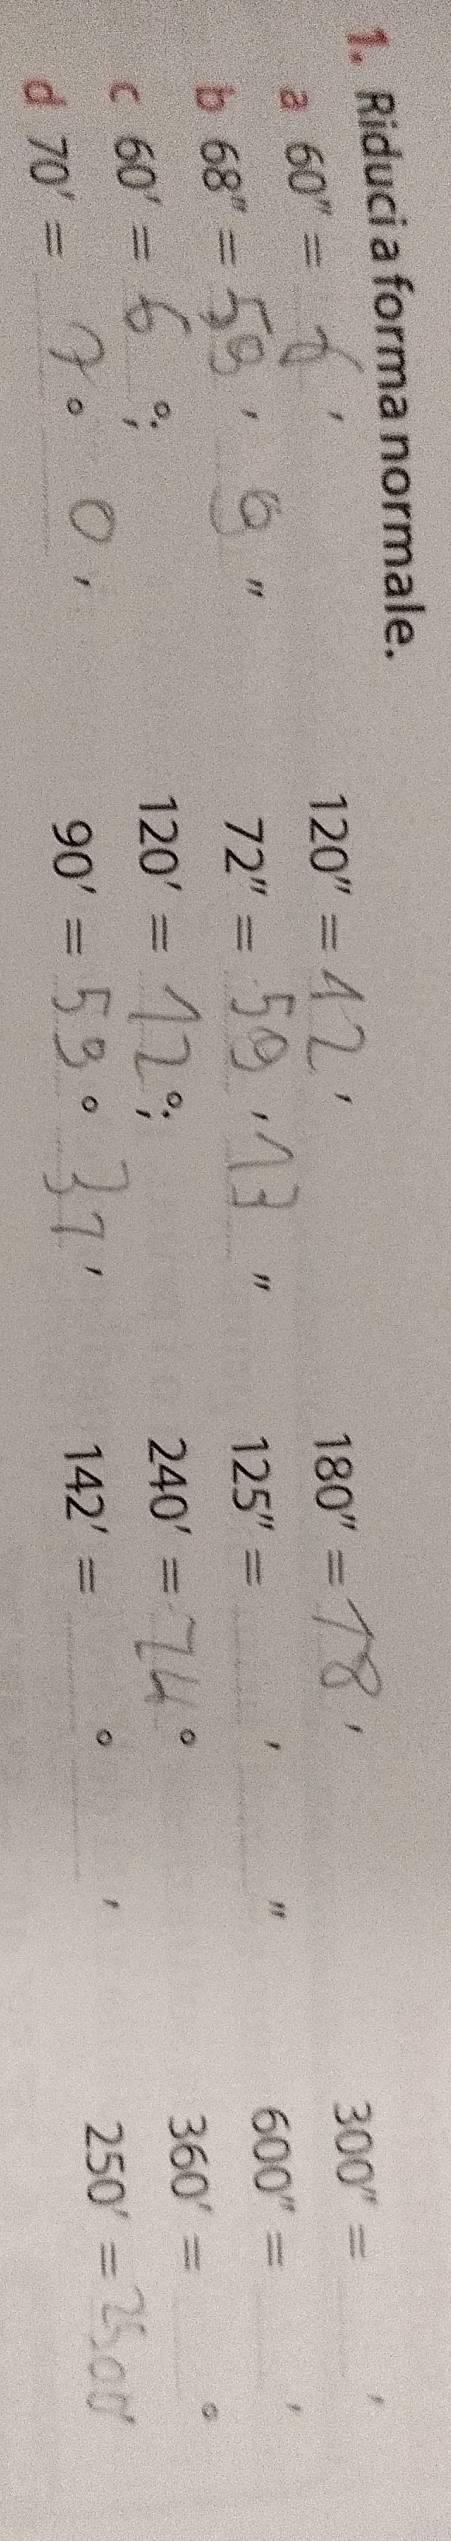 1. Riduci a forma normale.
a 60" = 6 ' 120" = 12 ' 180" = 18 ' 300" = '
b 68" = 59 ' 9 " 72" = 59 ' 13 " 125" = ' " 600" = '
c 60' = 6 °; 120' = 12 °; 240' = 24 ° 360' = °
d 70' = 7 ° 0 ' 90' = 59 ° 31 ' 142' = ° ' 250' =